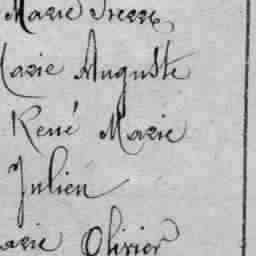 Marie Pierre
Marie Auguste
René Marie
Julien
Marie Olivier